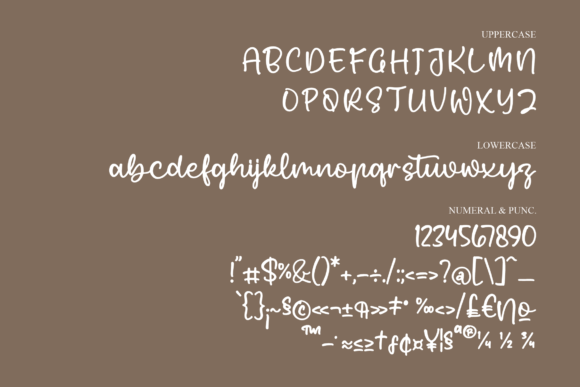 UPPERCASE
ABCDEFGHIJKLMN
OPQRSTUVWXYZ
LOWERCASE
abcdefghijklmnopqrstuvwxyz
NUMERAL & PUNC.
1234567890
!"#$%&()*+,-÷./:;<=>?@[\]^_
`{}¡~§©«¬±¶»‡•‰∞<>/₤€№
™–·≈≤≥†ƒ¢¤¥¦§ª®¼ ½ ¾